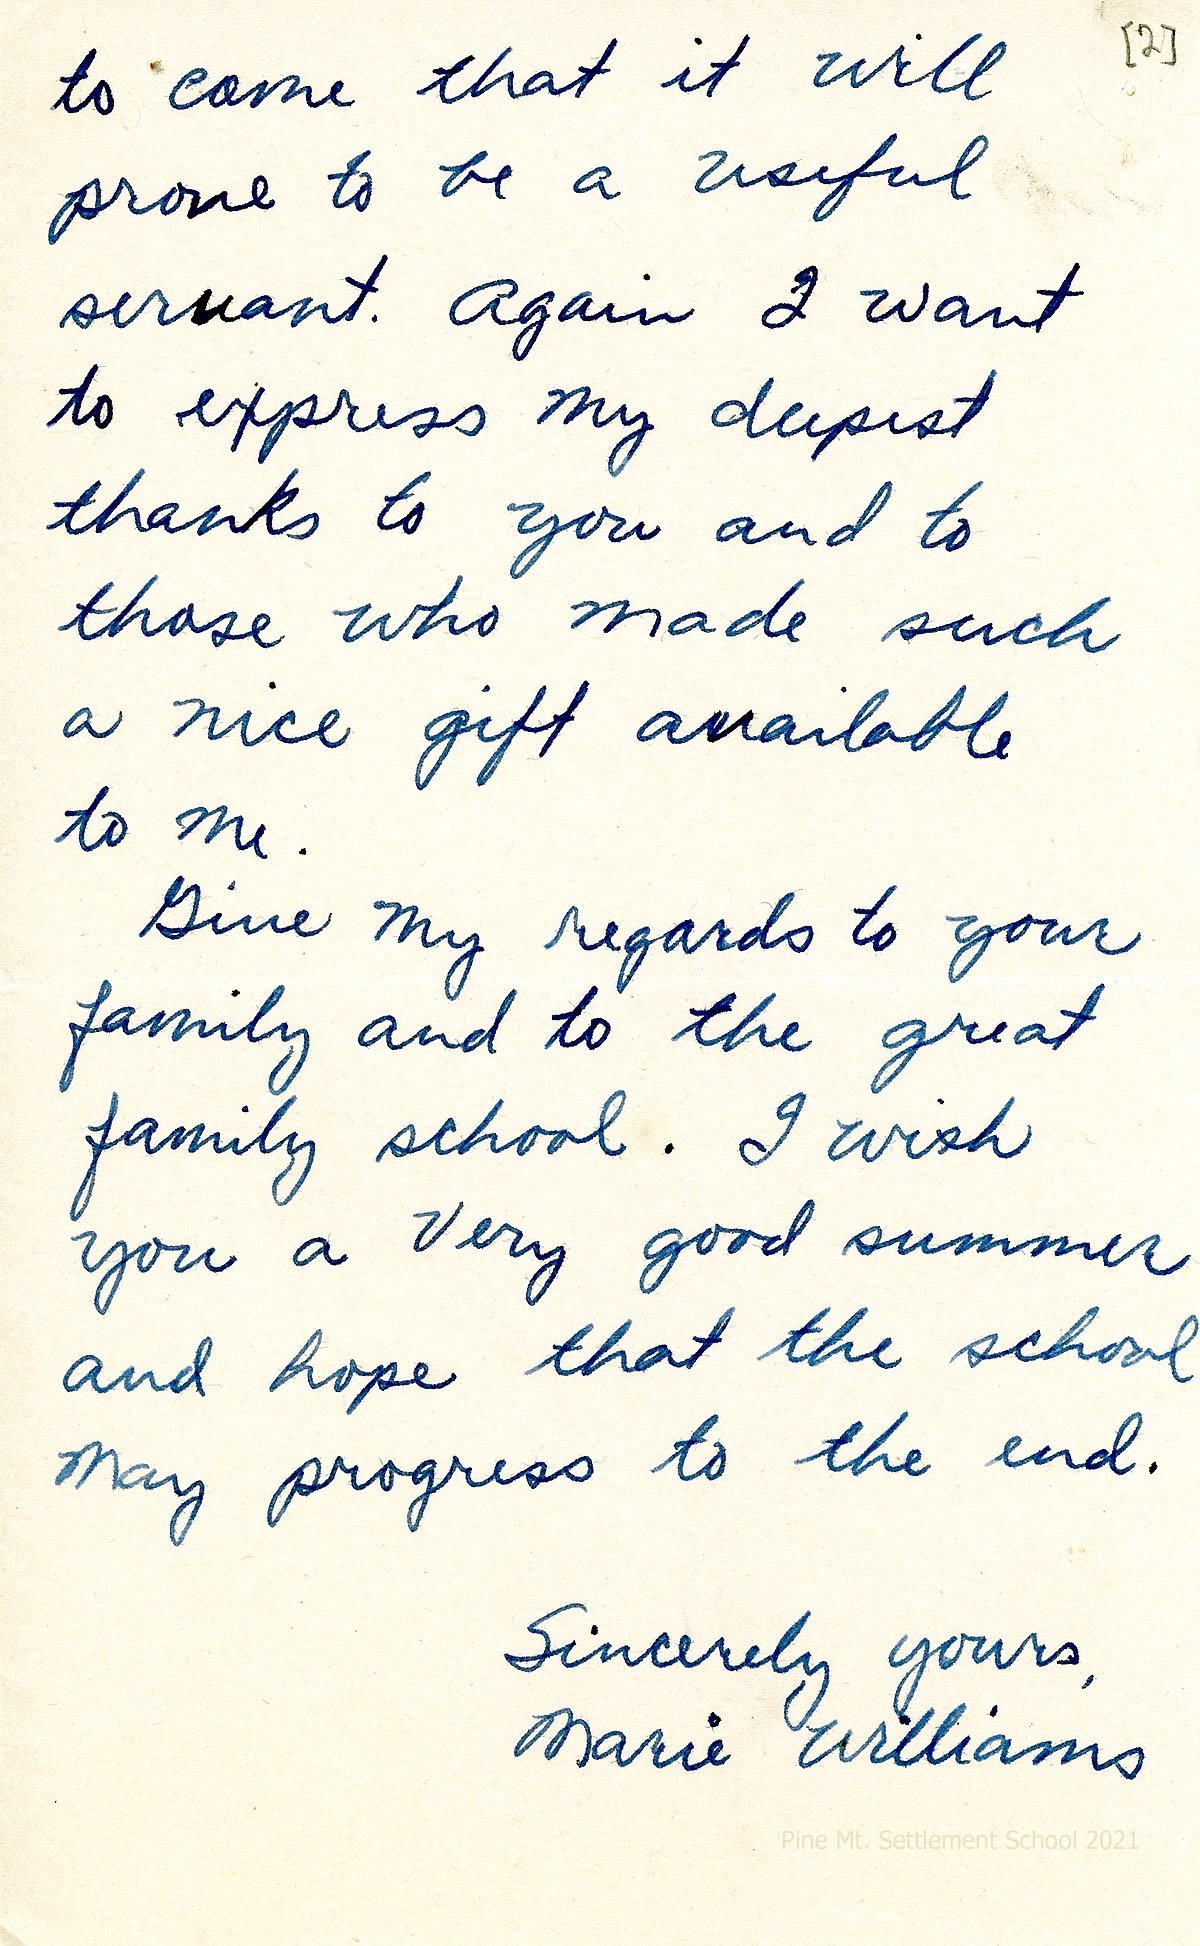 [2]
to come that it will
prove to be a useful
servant. Again I want
to express my deepest
thanks to you and to
those who made such
a nice gift available
to me.
Give my regards to your
family and to the great
family school. I wish
you a very good summer
and hope that the school
may progress to the end.
Sincerely yours,
Marie Williams
Pine Mt. Settlement School 2021